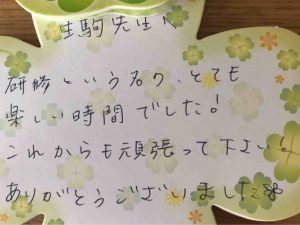 生駒先生へ
研修という名の、とても
楽しい時間でした!
これからも頑張って下さい!
ありがとうございました